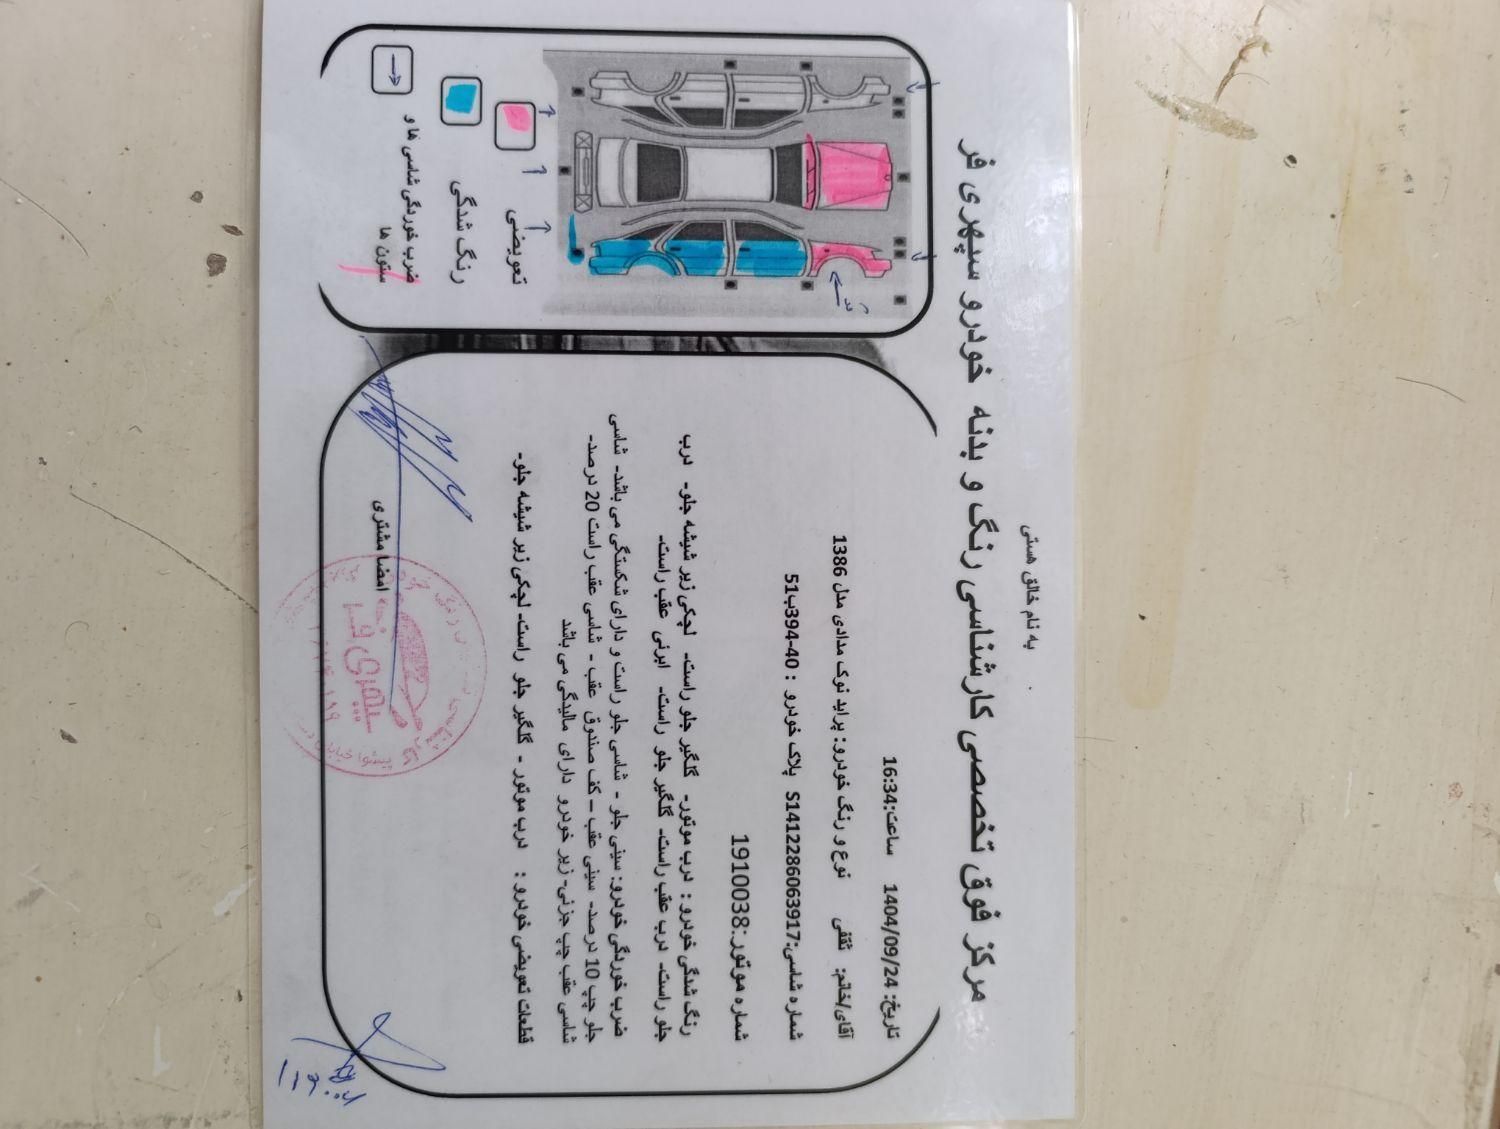 به نام خالق هستی
مرکز فوق تخصصی کارشناسی رنگ و بدنه خودرو سپهری فر
تاریخ: 1404/09/24 ساعت:16:34
آقای/خانم: ثقفی نوع و رنگ خودرو: پراید نوک مدادی مدل 1386
شماره شاسی:S1412286063917 پلاک خودرو : 40-394ب51
شماره موتور:1910038
رنگ شدگی خودرو : درب موتور- گلگیر جلو راست- لچکی زیر شیشه جلو- درب
جلو راست- درب عقب راست- گلگیر جلو راست- ابرنی عقب راست-
ضرب خوردگی خودرو: سینی جلو - شاسی جلو راست و دارای شکستگی می باشد- شاسی
جلو چپ 10 درصد- سینی عقب – کف صندوق عقب - شاسی عقب راست 20 درصد-
شاسی عقب چپ جزئی- زیر خودرو دارای مالیدگی می باشد
قطعات تعویضی خودرو : درب موتور - گلگیر جلو راست- لچکی زیر شیشه جلو-
امضا مشتری
سپهری فر
تعویضی
رنگ شدگی
ضرب خوردگی شاسی ها و
ستون ها